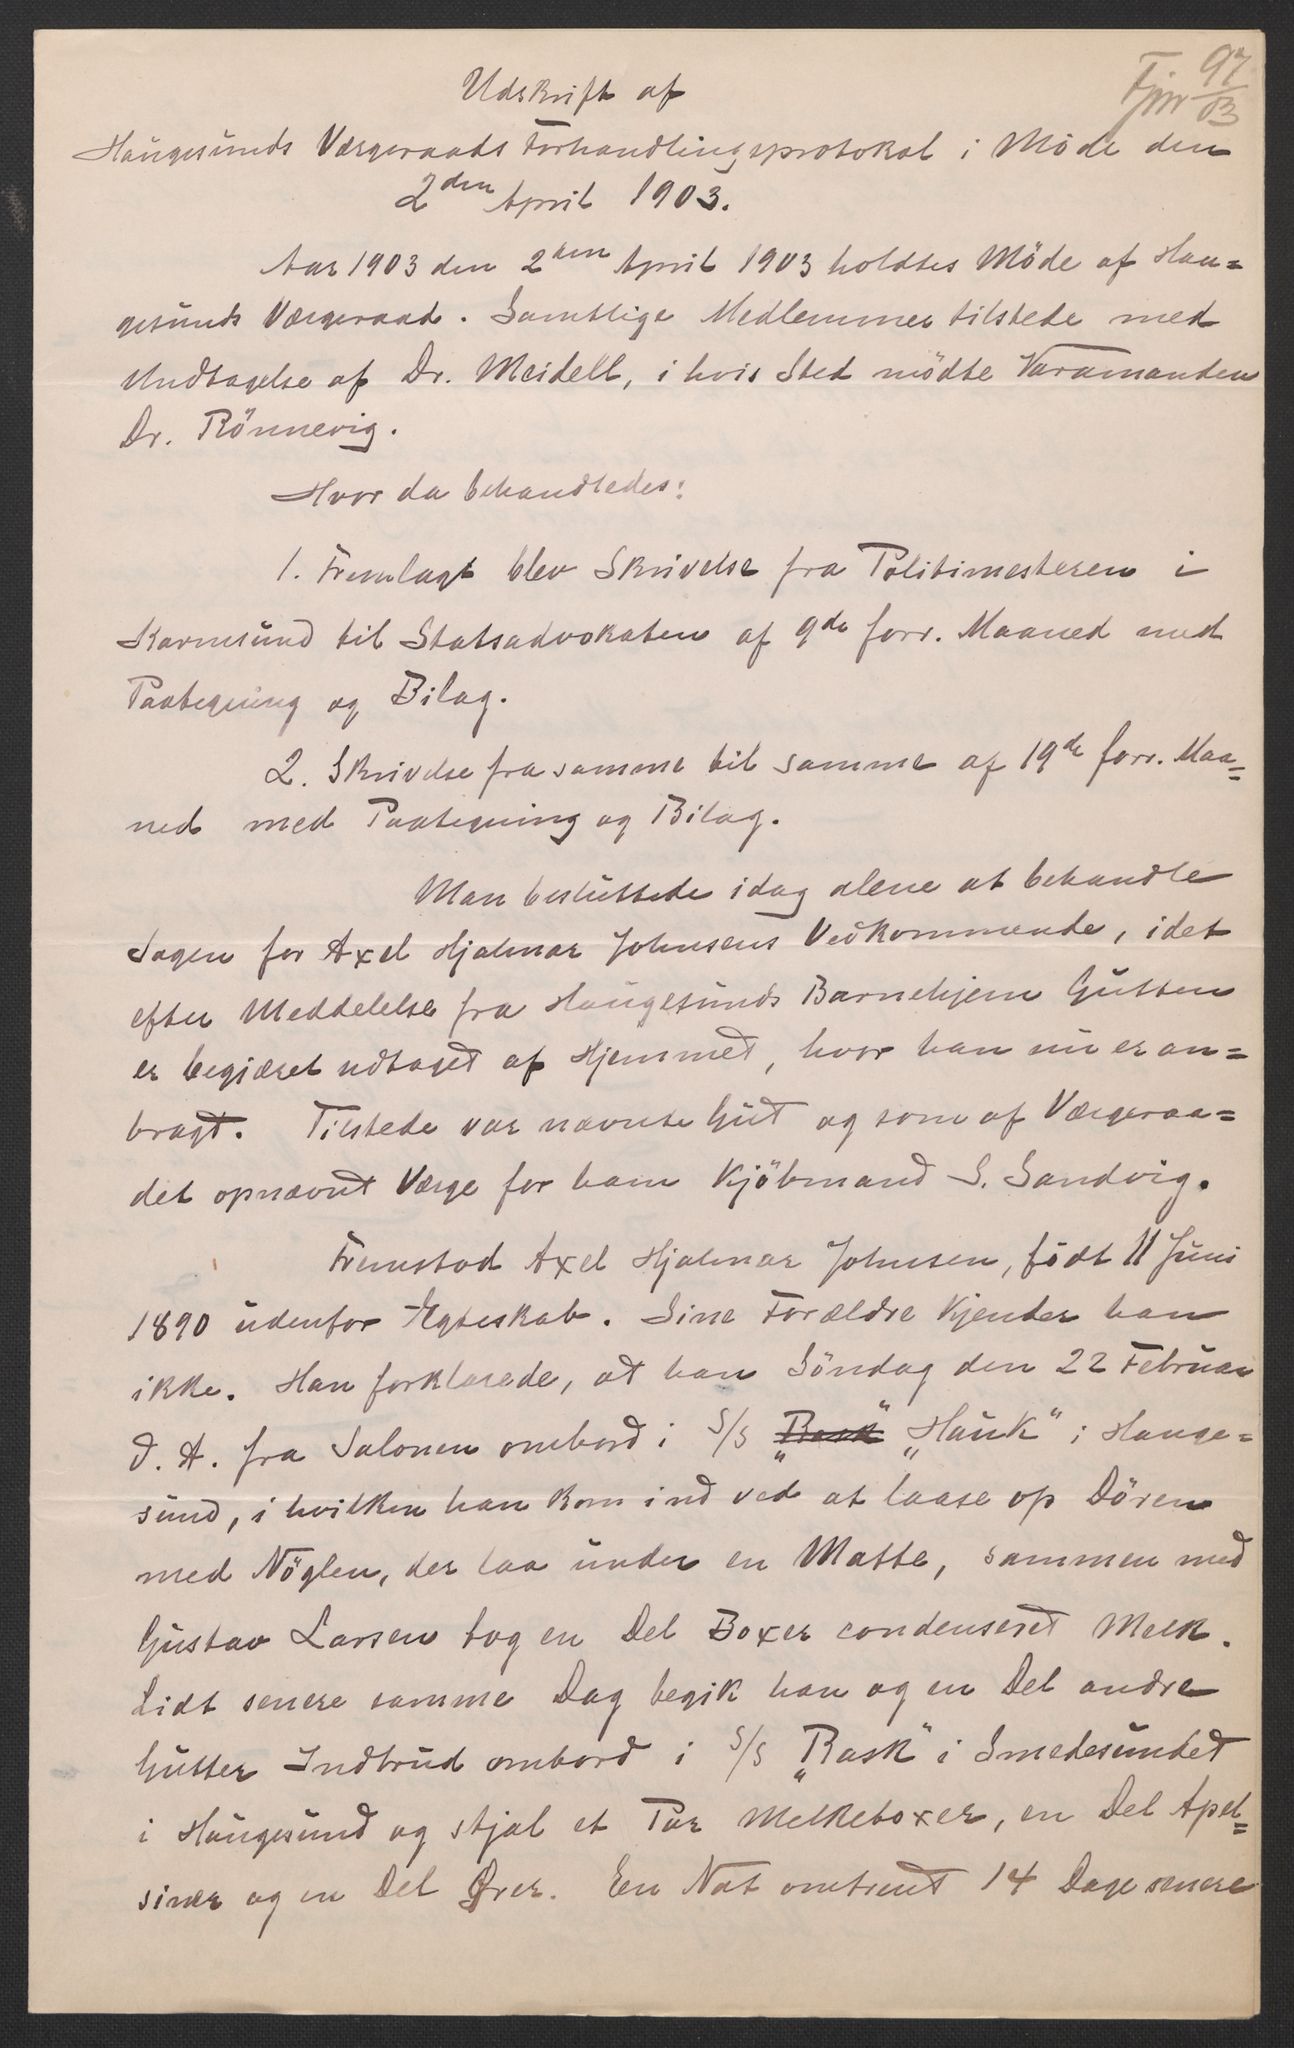 Fjnr 97/03
Udskrift af
Haugesunds Værgeraads Forhandlingsprotokol i Møde den
2den April 1903.
Aar 1903 den 2den April 1903 holdtes Möde af Hau=
gesunds Værgeraad. Samtlige Medlemmer tilstede med
Undtagelse af Dr. Meidell, i hvis Sted mödte Varamanden
Dr. Rönnevig.
Hvor da behandledes:
1. Fremlagt blev Skrivelse fra Politimesteren i
Karmsund til Statsadvokaten af 9de forr. Maaned med
Paategning og Bilag.
2. Skrivelse fra samme til samme af 19de forr. Maa=
ned med Paategning og Bilag.
Man besluttede idag alene at behandle
Sagen for Axel Hjalmar Johnsens Vedkommende, idet
efter Meddelelse fra Haugesunds Barnehjem Gutten
er begjæret udtaget af Hjemmet, hvor han nu er an=
bragt. Tilstede var nævnte Gut og som af Værgeraa=
det opnævnt Værge for ham Kjöbmand S. Sandvig.
Fremstod Axel Hjalmar Johnsen, födt 11 Juni
1890 udenfor Ægteskab. Sine Forældre kjender han
ikke. Han forklarede, at han Söndag den 22 Februar
d. A. fra Salonen ombord i S/S "Bask" „Hauk" i Hauge=
sund, i hvilken han kom ind ved at laase op Dören
med Nöglen, der laa under en Matte, sammen med
Gustav Larsen tog en Del Boxer condenseret Melk.
Lidt senere samme Dag begik han og en Del andre
Gutter Indbrud ombord i S/S „Rask" i Smedesundet
i Haugesund og stjal et Par Melkeboxer, en Del Apel=
siner og en Del Ører. En Nat omtrent 14 Dage senere